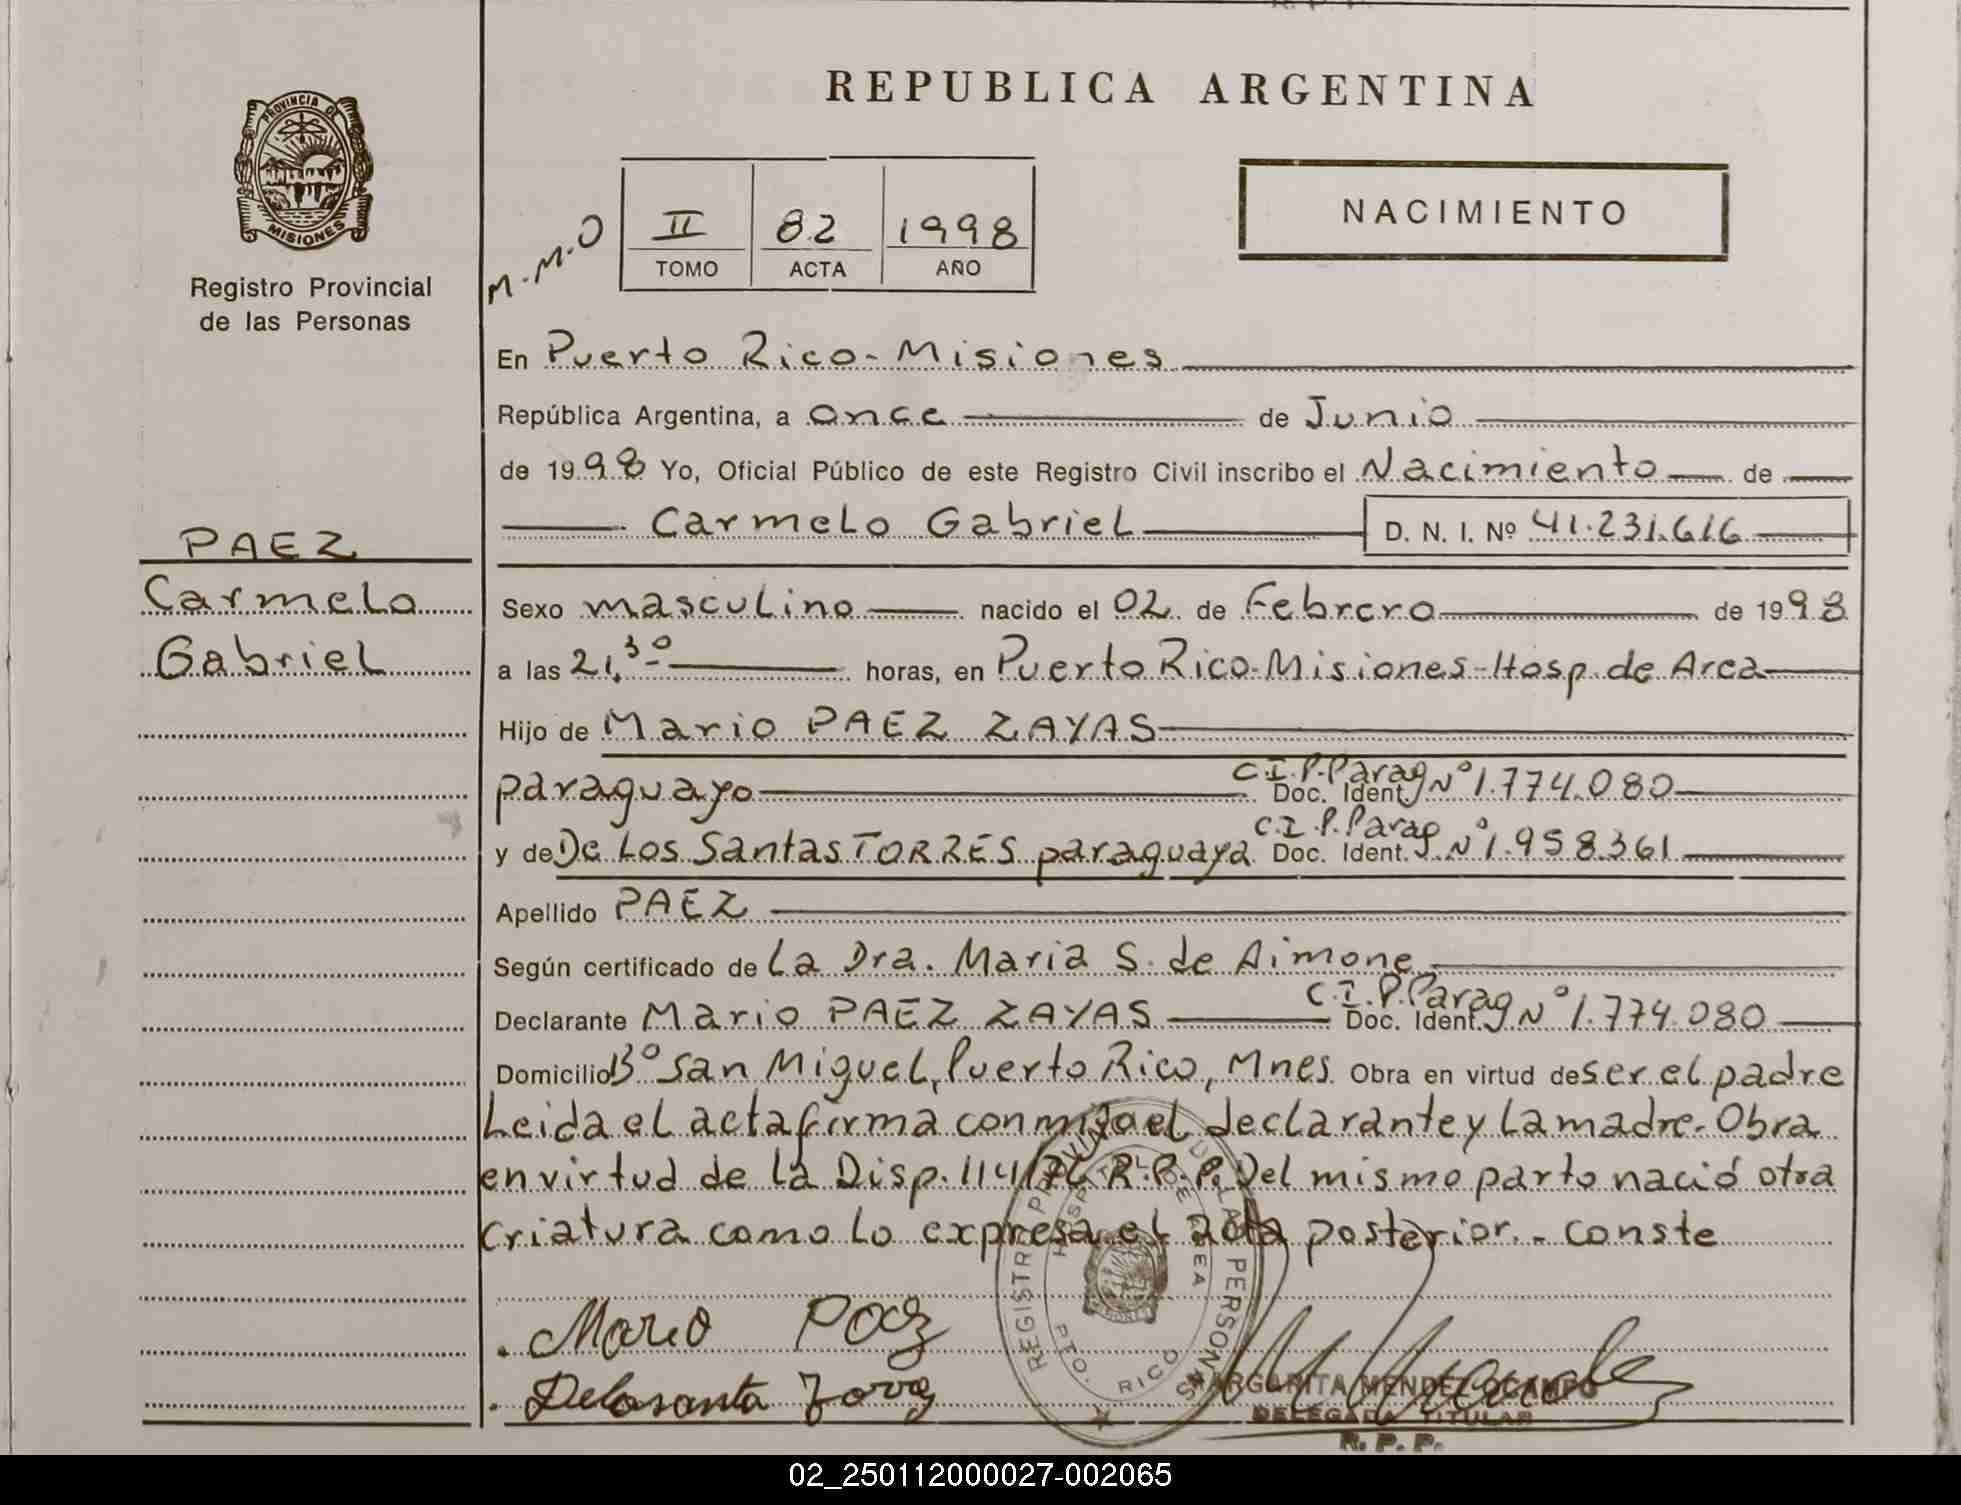 REPUBLICA ARGENTINA
PROVINCIA DE
MISIONES
Registro Provincial
de las Personas
M.M.O
II 82 1998
TOMO ACTA AÑO
NACIMIENTO
En Puerto Rico - Misiones
República Argentina, a once de Junio
de 1998 Yo, Oficial Público de este Registro Civil inscribo el Nacimiento de
Carmelo Gabriel D. N. I. Nº 41.231.616
PAEZ
Carmelo
Gabriel
Sexo masculino nacido el 02 de Febrero de 1998
a las 21,30 horas, en Puerto Rico-Misiones-Hosp. de Area
Hijo de Mario PAEZ ZAYAS
paraguayo C.I.P. Parag Doc. Ident. Nº 1.774.080
y de De Los Santas TORRES paraguaya C.I.P. Parag Doc. Ident. Nº 1.958.361
Apellido PAEZ
Según certificado de la Dra. Maria S. de Aimone
Declarante Mario PAEZ ZAYAS C.I.P. Parag Doc. Ident. Nº 1.774.080
Domicilio Bº San Miguel, Puerto Rico, Mnes. Obra en virtud de ser el padre
Leida el acta firma conmigo el declarante y la madre. Obra
en virtud de la Disp. 114/76 R.P.P. Del mismo parto nació otra
criatura como lo expresa el acta posterior. - conste
Mario Paez
Delosanta Torre
HOSPITAL DE AREA
PTO. RICO
MARGARITA MENDEZ OCAMPO
DELEGADA TITULAR
R. P. P.
02_250112000027-002065